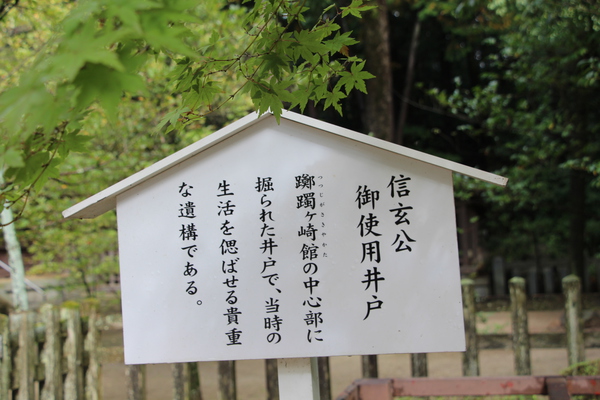 信玄公
御使用井戸
躑躅ヶ崎館の中心部に
つつじがさきやかた
掘られた井戸で、当時の
生活を偲ばせる貴重
な遺構である。